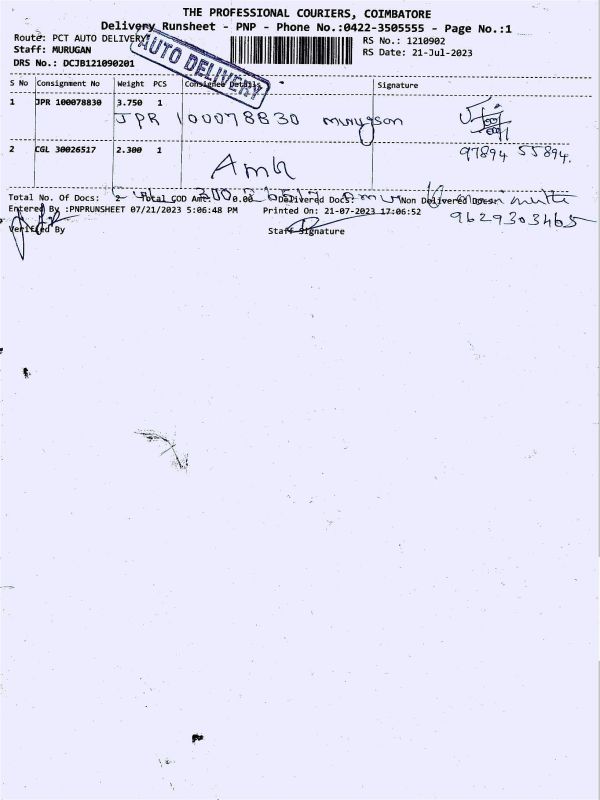 THE PROFESSIONAL COURIERS, COIMBATORE
Delivery Runsheet - PNP - Phone No.:0422-3505555 - Page No.:1
Route: PCT AUTO DELIVERY
RS No.: 1210902
Staff: MURUGAN
RS Date: 21-Jul-2023
DRS No.: DCJB121090201
AUTO DELIVERY
S No Consignment No Weight PCS Consignee Details Signature
1 JPR 100078830 3.750 1
JPR 100078830 murugan
97894 55894.
2 CGL 30026517 2.300 1
Total No. Of Docs: 2 Total COD Amt: 0.00 Delivered Docs: Non Delivered Docs:
CGL 30026517
9629303465
Entered By :PNPRUNSHEET 07/21/2023 5:06:48 PM Printed On: 21-07-2023 17:06:52
Verified By Staff Signature